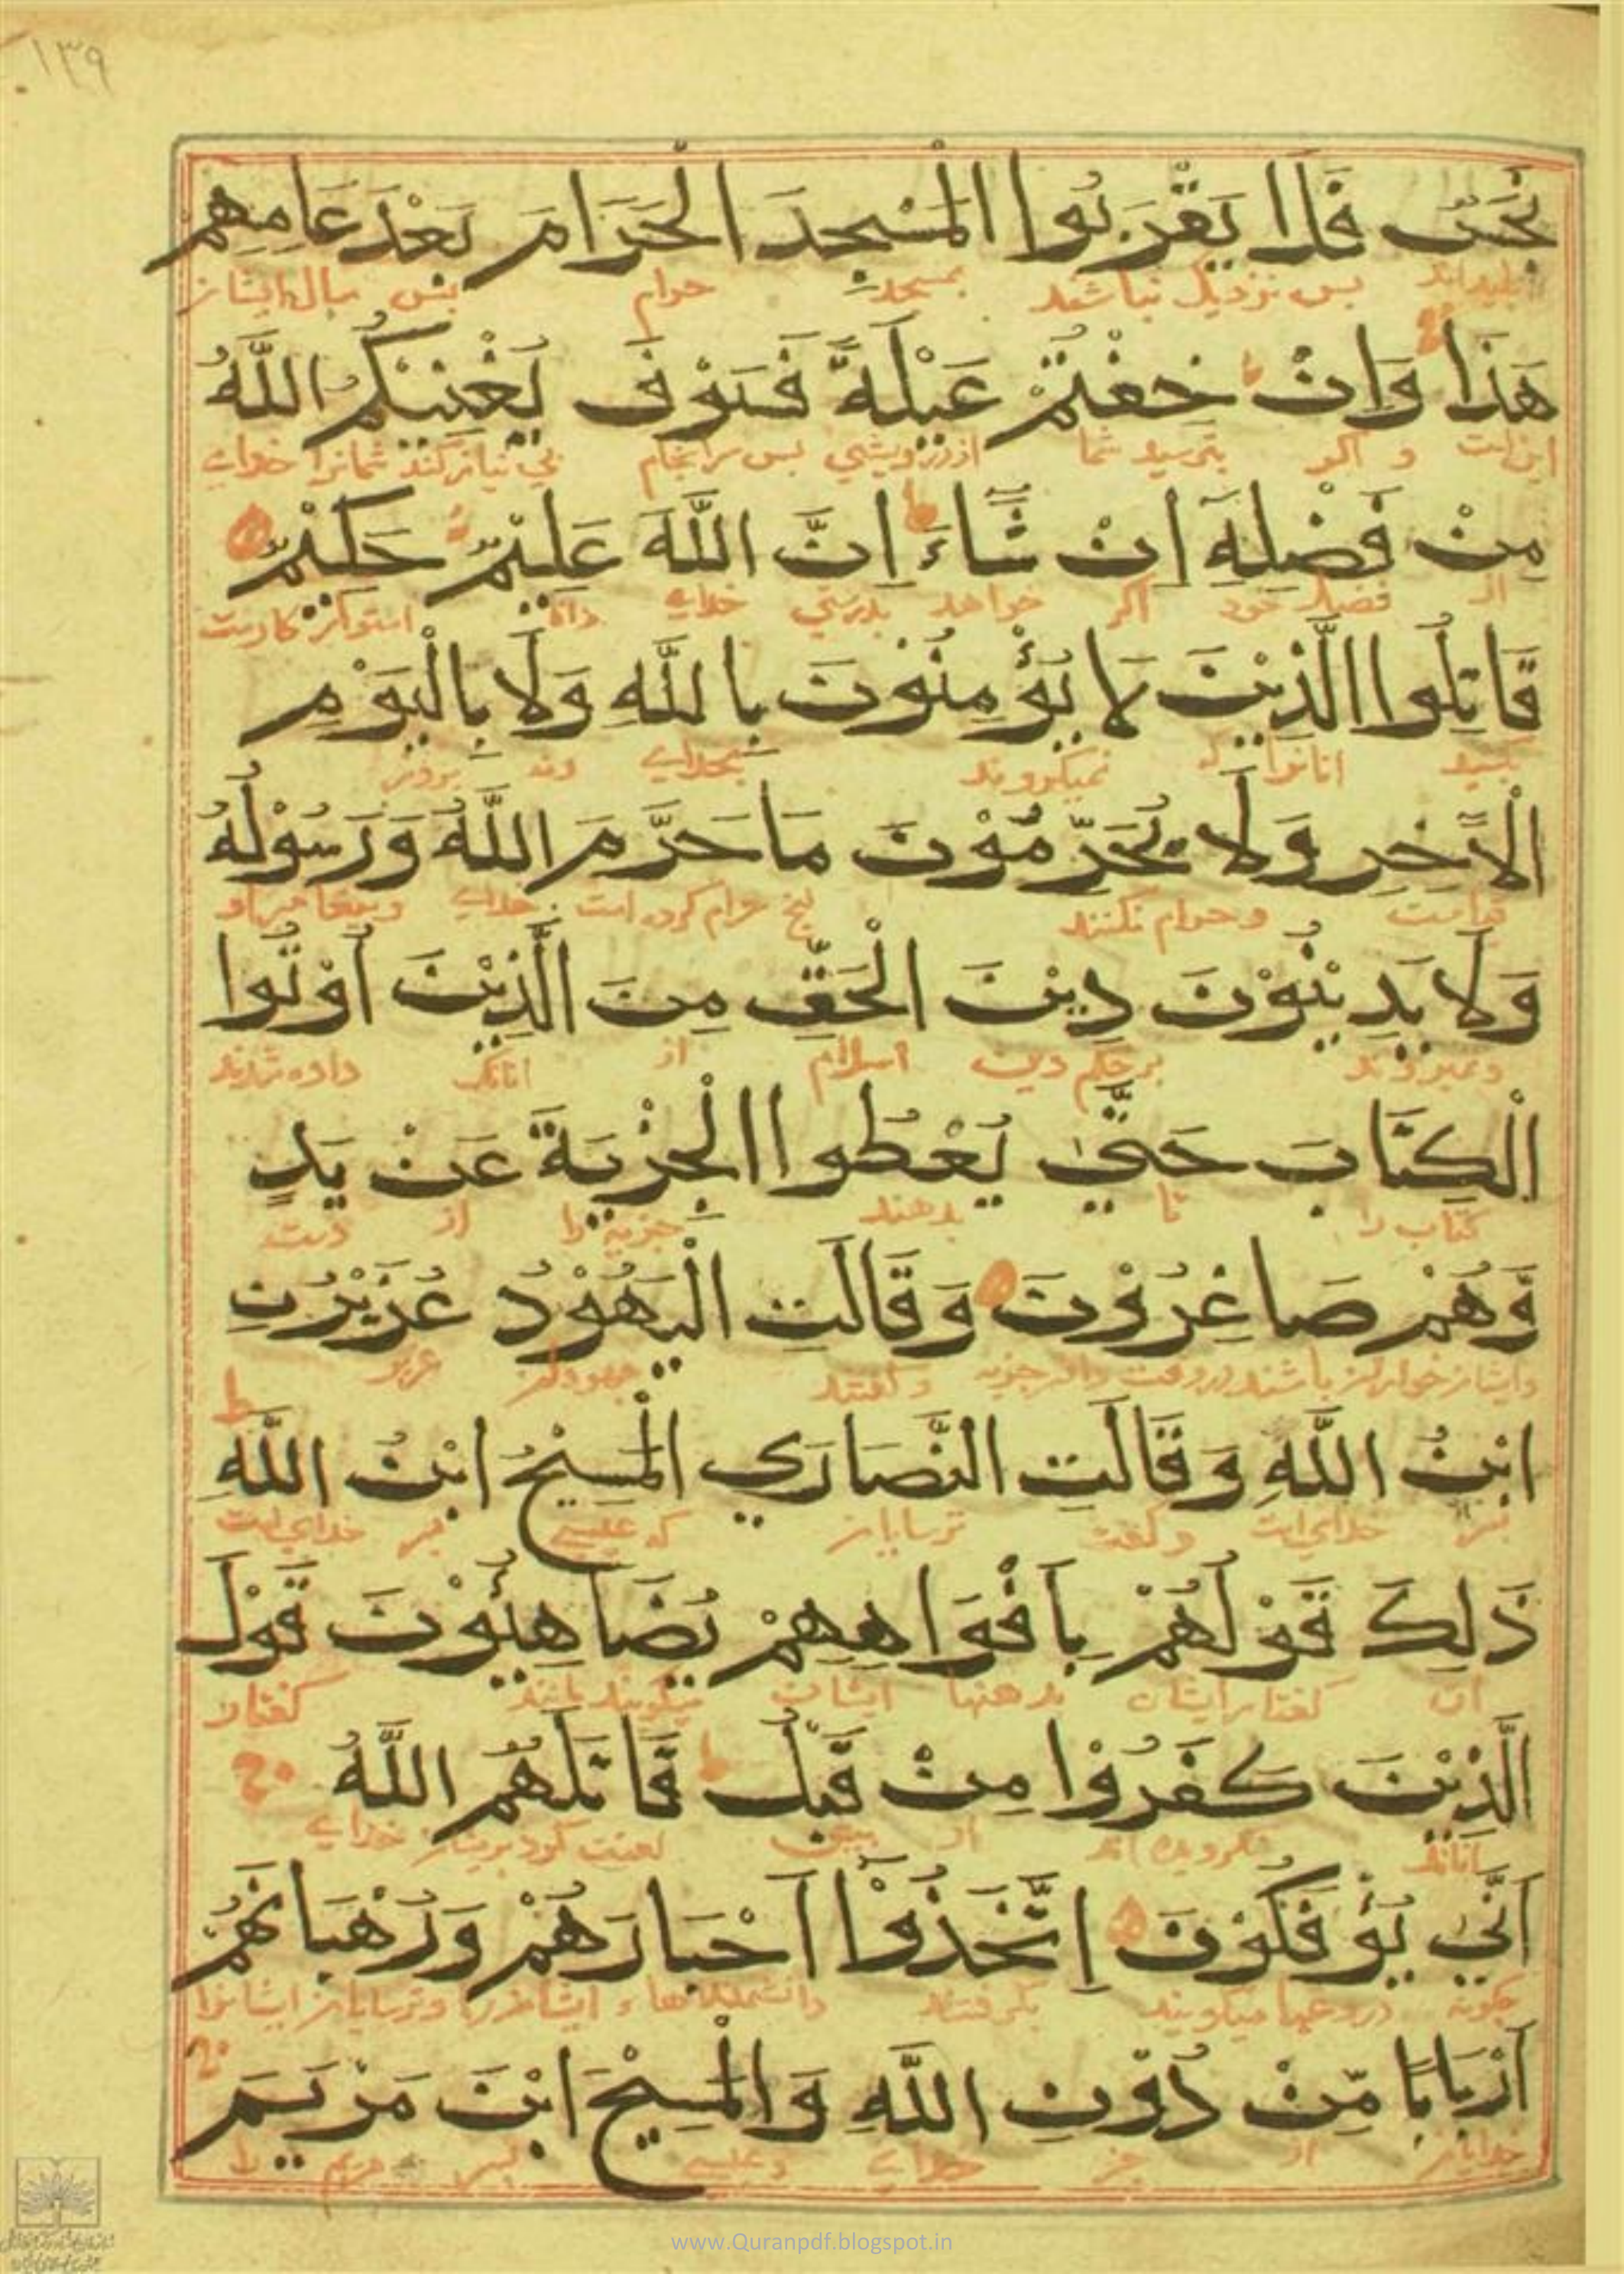 ١٣٩
نَجَسٌ فَلَا يَقْرَبُوا الْمَسْجِدَ الْحَرَامَ بَعْدَ عَامِهِمْ
پس نزدیک نباشند بمسجد حرام پس سال ایشان
هَذَا وَاِنْ خِفْتُمْ عَيْلَةً فَسَوْفَ يُغْنِيْكُمُ اللَّهُ
این است و اگر بترسید شما از درویشی پس سرانجام بی نیاز کند شمانرا خدای
مِنْ فَضْلِهٖٓ اِنْ شَآءَ ط اِنَّ اللَّهَ عَلِيْمٌ حَكِيْمٌ
از فضل خود اگر خواهد بدرستی خدای دانا استوار کارست
قَاتِلُوا الَّذِيْنَ لَا يُؤْمِنُوْنَ بِاللَّهِ وَلَا بِالْيَوْمِ
انانرا که نمیگروند بخدای ونه بروز
الْاٰخِرِ وَلَا يُحَرِّمُوْنَ مَا حَرَّمَ اللَّهُ وَرَسُوْلُهُ
قیامت وحرام نکنند حرام کرده است خدای
وَلَا يَدِيْنُوْنَ دِيْنَ الْحَقِّ مِنَ الَّذِيْنَ اُوْتُوا
دین اسلام از انانک داده شدند
الْكِتَابَ حَتّٰي يُعْطُوا الْجِزْيَةَ عَنْ يَدٍ
کتاب را تا بدهند جزیه را از دست
وَّهُمْ صَاغِرُوْنَ وَقَالَتِ الْيَهُوْدُ عُزَيْرُنِ
وایشان خوار باشند وگفتند جهودان عزیر
ابْنُ اللَّهِ وَقَالَتِ النَّصَارَي الْمَسِيْحُ ابْنُ اللَّهِ ط
خدای است وگفت ترسایان که عیسی خدای است
ذَلِكَ قَوْلُهُمْ بِاَفْوَاهِهِمْ يُضَاهِئُوْنَ قَوْلَ
ان گفتار ایشان بدهنها ایشان میگویند مانند گفتار
الَّذِيْنَ كَفَرُوْا مِنْ قَبْلُ ط قَاتَلَهُمُ اللَّهُ
از پیش لعنت کرد خدای
اَنّٰي يُؤْفَكُوْنَ اِتَّخَذُوْٓا اَحْبَارَهُمْ وَرُهْبَانَهُمْ
چگونه دروغها میگویند بگرفتند وترسایان ایشانرا
اَرْبَابًا مِّنْ دُوْنِ اللَّهِ وَالْمَسِيْحَ ابْنَ مَرْيَمَ
خدایان از جز خدای وعیسی پسر مریم را
www.Quranpdf.blogspot.in